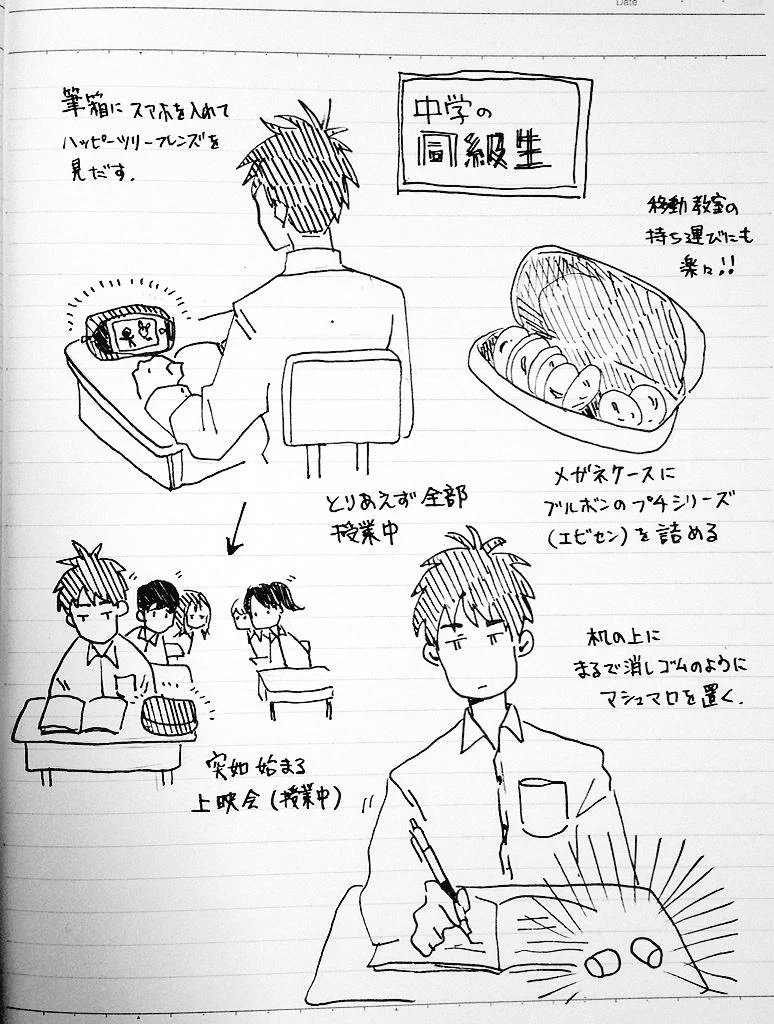 Date
中学の
同級生
筆箱にスマホを入れて
ハッピーツリーフレンズを
見だす.
移動教室の
持ち運びにも
楽々!!
メガネケースに
ブルボンのプチシリーズ
(エビセン)を詰める
とりあえず全部
授業中
突如始まる
上映会(授業中)
机の上に
まるで消しゴムのように
マシュマロを置く.